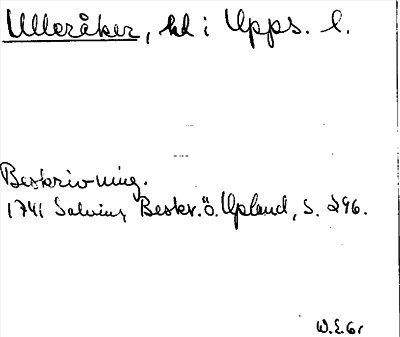 Ulleråker, hd i Upps. l.
Beskrivning.
1741 Salvius Beskr. ö. Upland, S. 296.
W.E.Gr